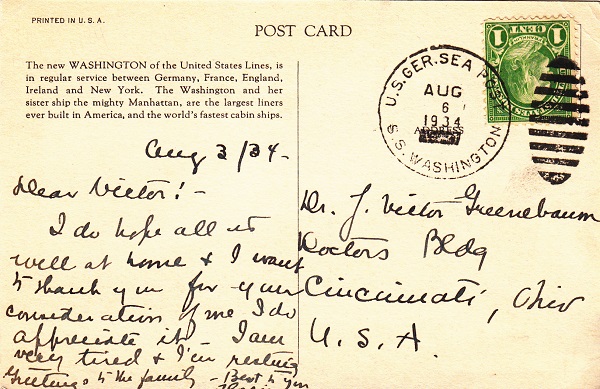 PRINTED IN U.S.A.
POST CARD
The new WASHINGTON of the United States Lines, is
in regular service between Germany, France, England,
Ireland and New York. The Washington and her
sister ship the mighty Manhattan, are the largest liners
ever built in America, and the world's fastest cabin ships.
1 CENT 1
U.S. GER. SEA POST
AUG
6
1934
ADDRESS
S.S. WASHINGTON
Aug 3/34-
Dear Victor! -
I do hope all is
well at home & I want
to thank you for your
consideration of me I do
appreciate it - I am
very tired & I'm resting
Greetings to the family - Best to you
Dr. J. Victor Greenebaum
Doctors Bldg
Cincinnati, Ohio
U.S.A.